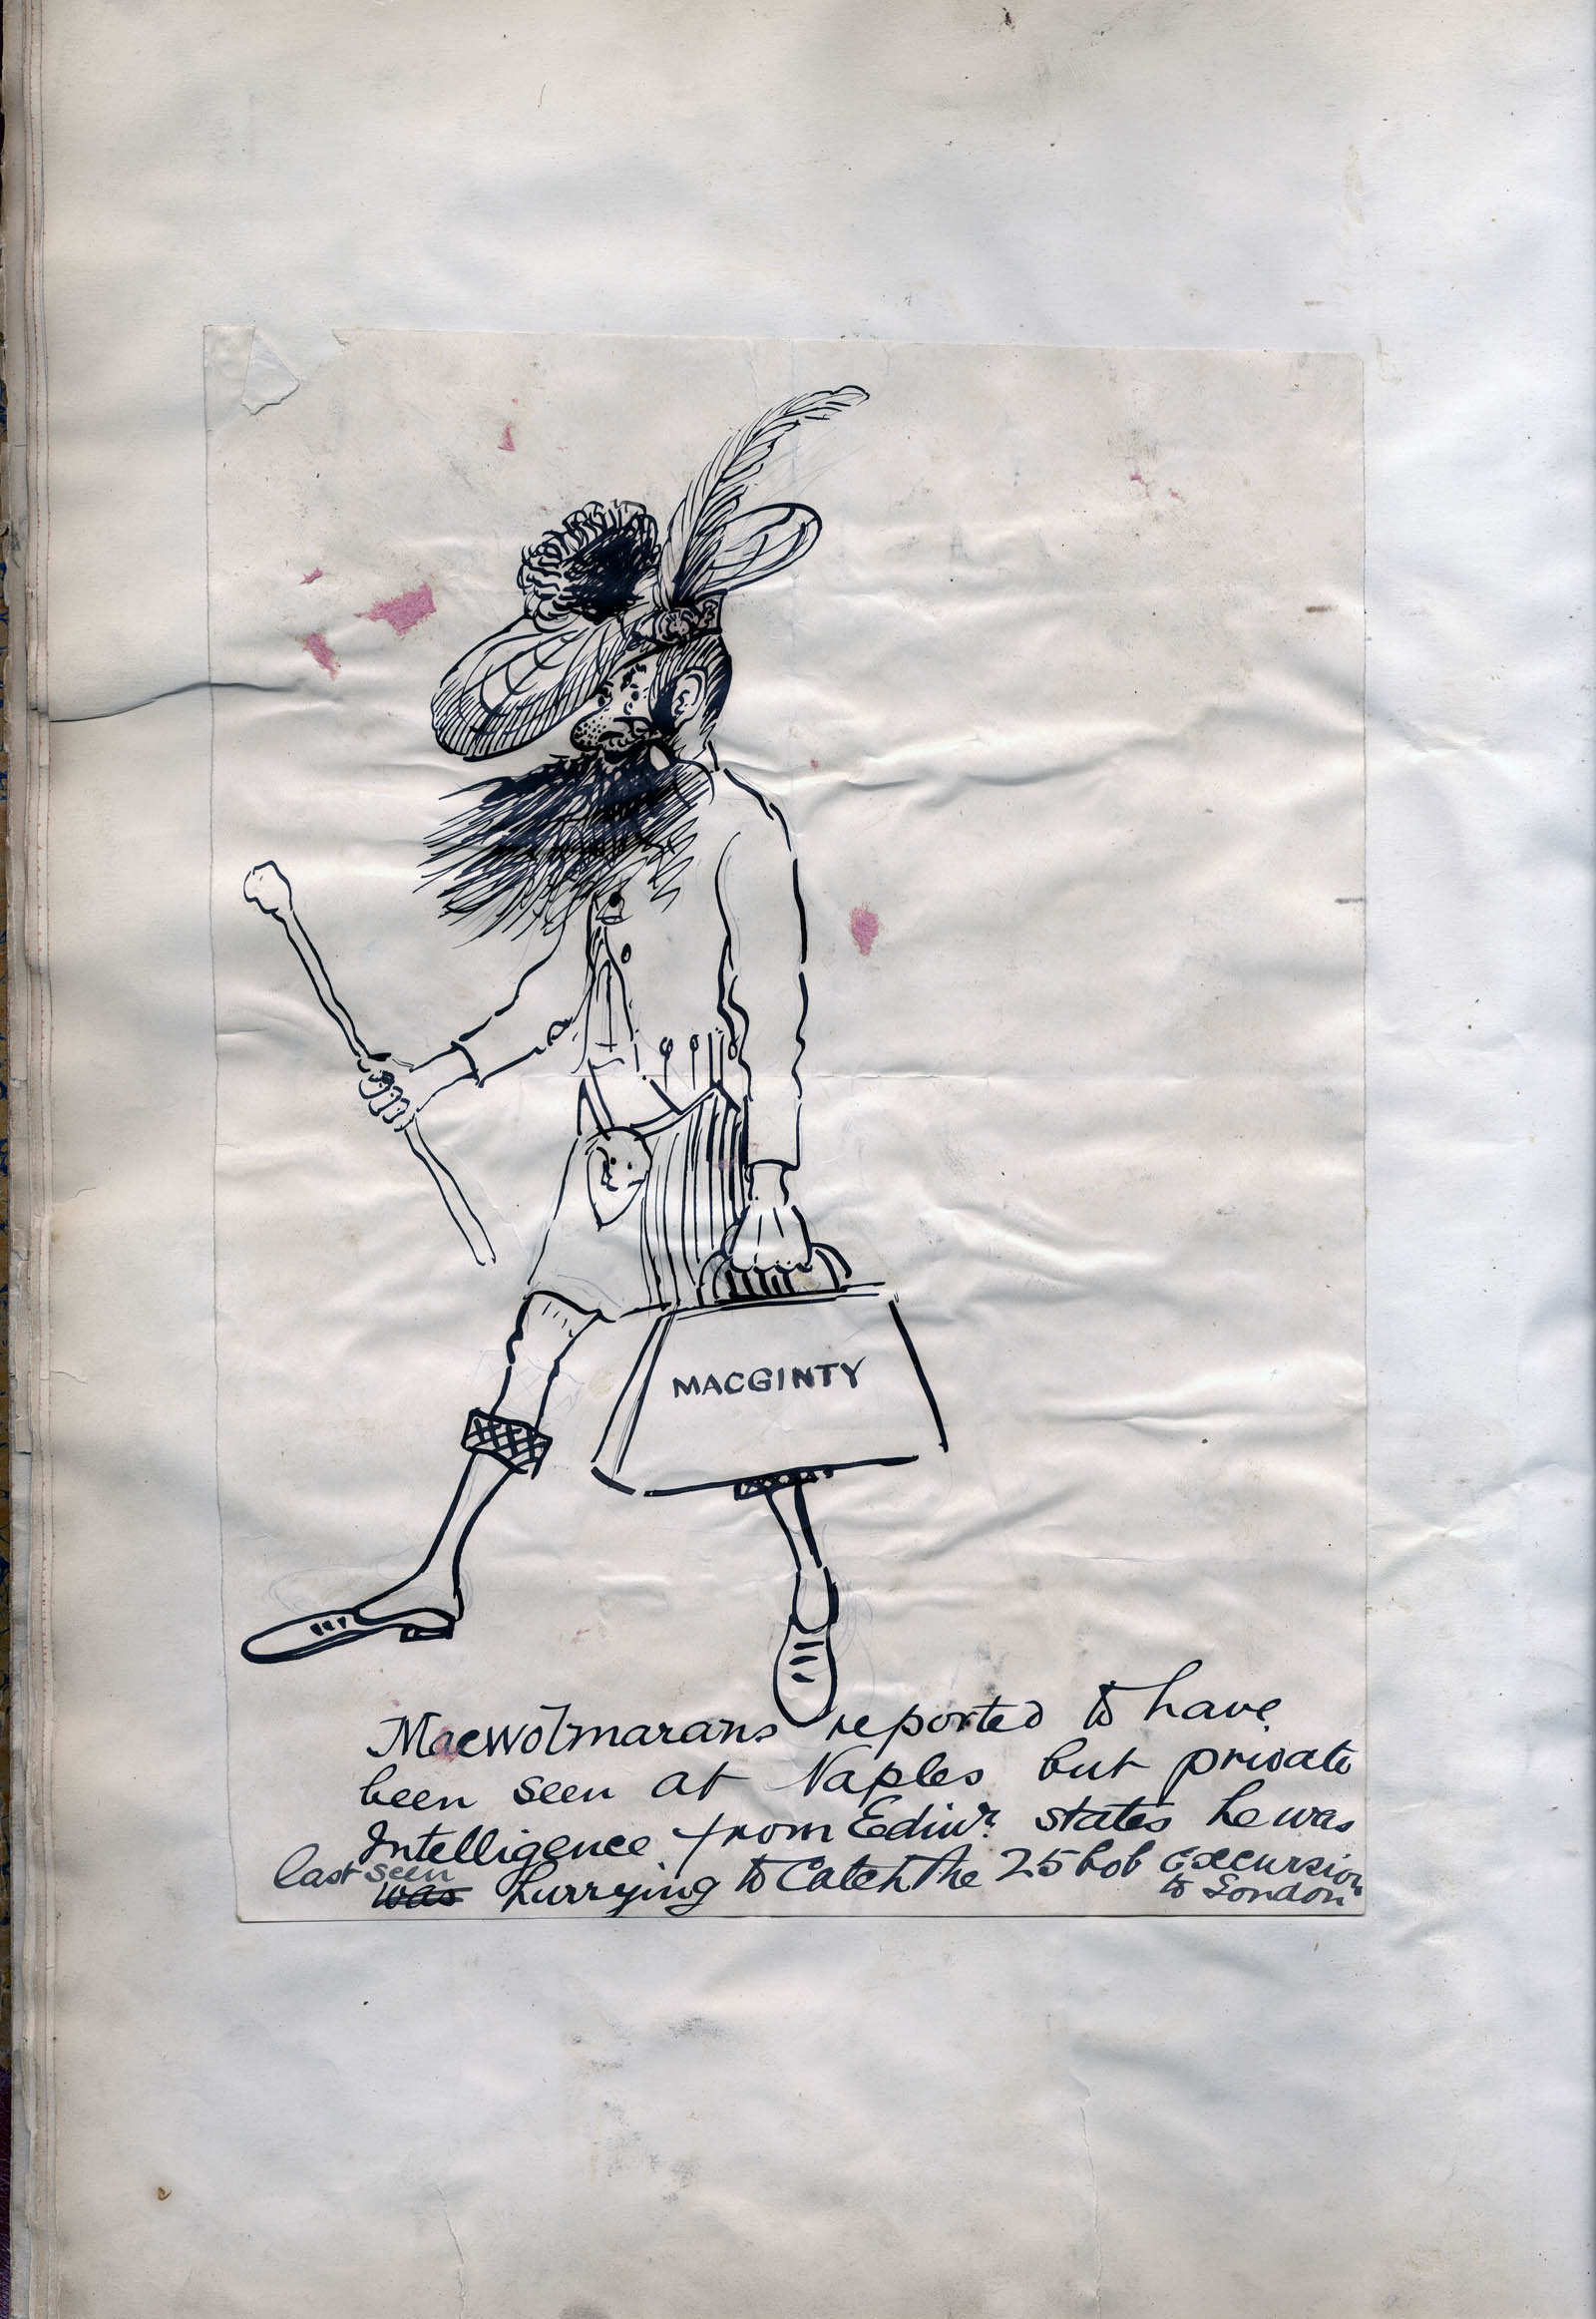 MACGINTY
MacWolmarans reported to have
been seen at Naples but private
Intelligence from Edinr. states he was
last seen
was hurrying to Catch the 25 bob excursion
to London